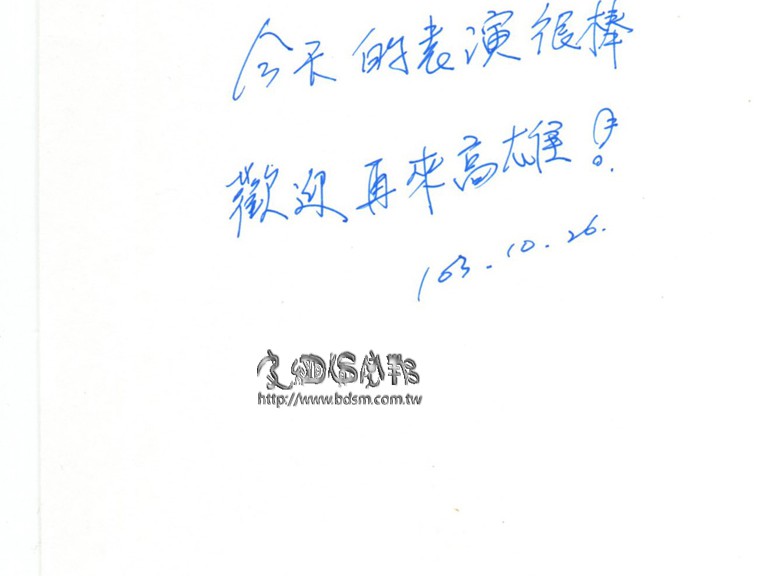 今天的表演很棒
歡迎再來高雄!
103.10.26.
http://www.bdsm.com.tw